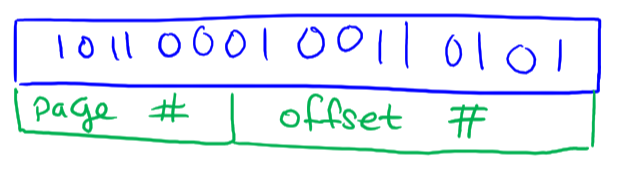 1011 0001 0011 0101
page # offset #